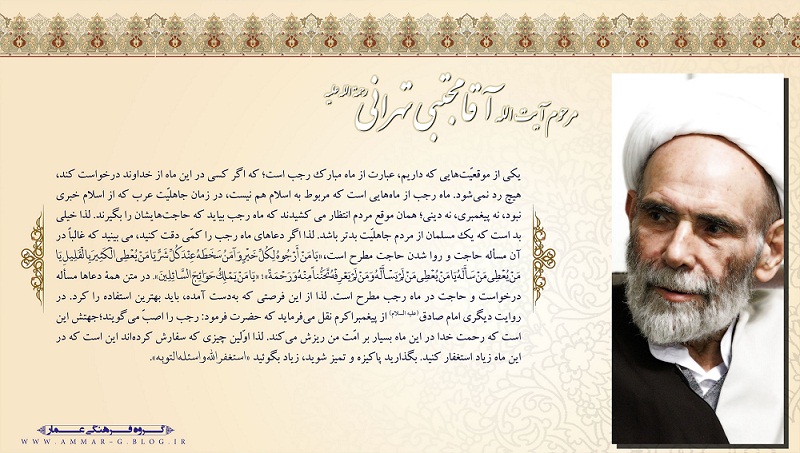 مرحوم آیت الله آقا مجتبی تهرانی رحمة الله علیه
یکی از موقعیّت‌هایی که داریم، عبارت از ماه مبارک رجب است؛ که اگر کسی در این ماه از خداوند درخواست کند،
هیچ رد نمی‌شود. ماه رجب از ماه‌هایی است که مربوط به اسلام هم نیست، در زمان جاهلیّت عرب که از اسلام خبری
نبود، نه پیغمبری، نه دینی؛ همان موقع مردم انتظار می کشیدند که ماه رجب بیاید که حاجت‌هایشان را بگیرند. لذا خیلی
بد است که یک مسلمان از مردم جاهلیّت بدتر باشد. لذا اگر دعاهای ماه رجب را کمّی دقت کنید، می بینید که غالباً در
آن مسأله حاجت و روا شدن حاجت مطرح است، «یَا مَنْ أَرْجُوهُ لِکُلِّ خَیْرٍ وَ آمَنُ سَخَطَهُ عِنْدَ کُلِّ شَرٍّ یَا مَنْ یُعْطِی الْکَثِیرَ بِالْقَلِیلِ یَا
مَنْ یُعْطِی مَنْ سَأَلَهُ یَا مَنْ یُعْطِی مَنْ لَمْ یَسْأَلْهُ وَ مَنْ لَمْ یَعْرِفْهُ تَحَنُّناً مِنْهُ وَ رَحْمَةً»؛ «یَا مَنْ یَمْلِکُ حَوَائِجَ السَّائِلِینَ». در متن همۀ دعاها مسأله
درخواست و حاجت در ماه رجب مطرح است. لذا از این فرصتی که به‌دست آمده، باید بهترین استفاده را کرد. در
روایت دیگری امام صادق(علیه السلام) از پیغمبراکرم نقل می‌فرماید که حضرت فرمود: رجب را اصبّ می‌گویند؛جهتش این
است که رحمت خدا در این ماه بسیار بر امّت من ریزش می‌کند. لذا اوّلین چیزی که سفارش کرده‌اند این است که در
این ماه زیاد استغفار کنید. بگذارید پاکیزه و تمیز شوید، زیاد بگوئید «استغفر الله و اسئله التوبه».
گروه فرهنگی عمار
WWW.AMMAR-G.BLOG.IR